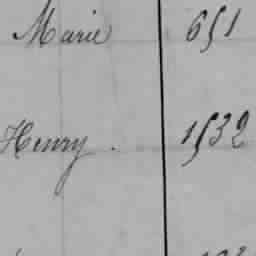 Marie 651
Henry . 1532